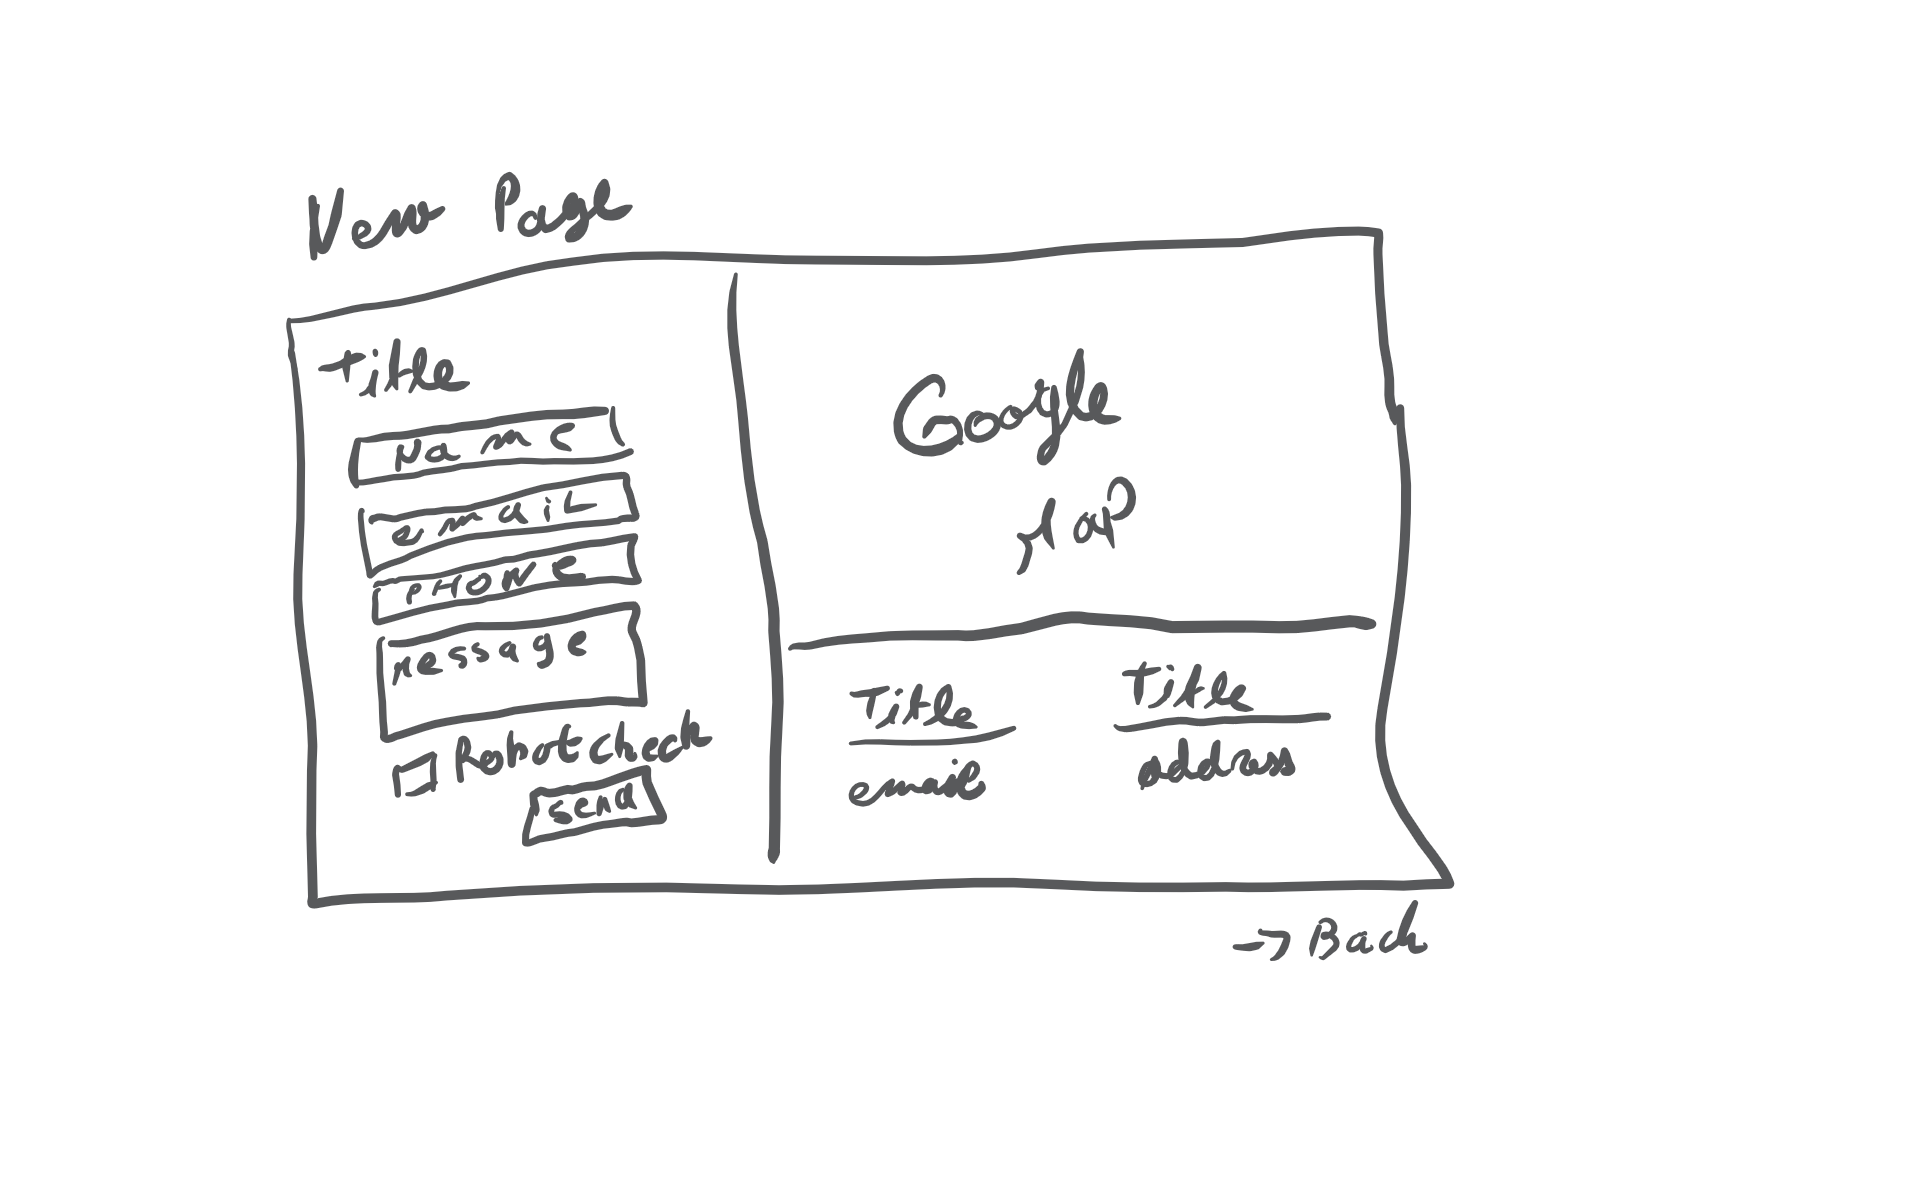 New Page
Title
Name
email
PHONE
message
Robot check
send
Google
Map
Title
email
Title
address
-> Back